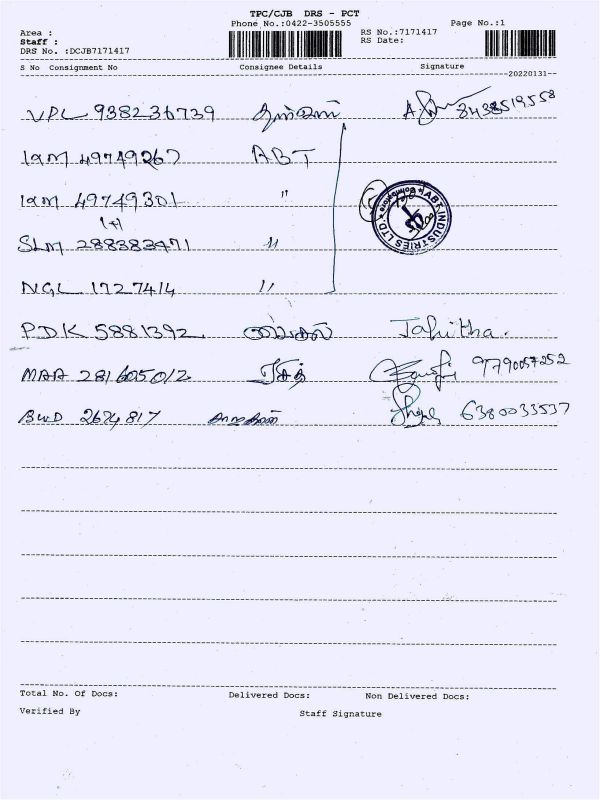 TPC/CJB DRS - PCT
Phone No.:0422-3505555 Page No.:1
Area :
Staff : RS No.:7171417
DRS No. :DCJB7171417 RS Date:
S No Consignment No Consignee Details Signature
--20220131--
VPL 938236739 8438519558
IXM 49749267 ABT
IXM 49749301 "
(4)
SLM 288383471 "
NGL 1727414 "
ABT INDUSTRIES LTD
PDK 5881392 Tahitha.
MAA 281605012 9790057252
BWD 2674817 6380033537
Total No. Of Docs: Delivered Docs: Non Delivered Docs:
Verified By Staff Signature